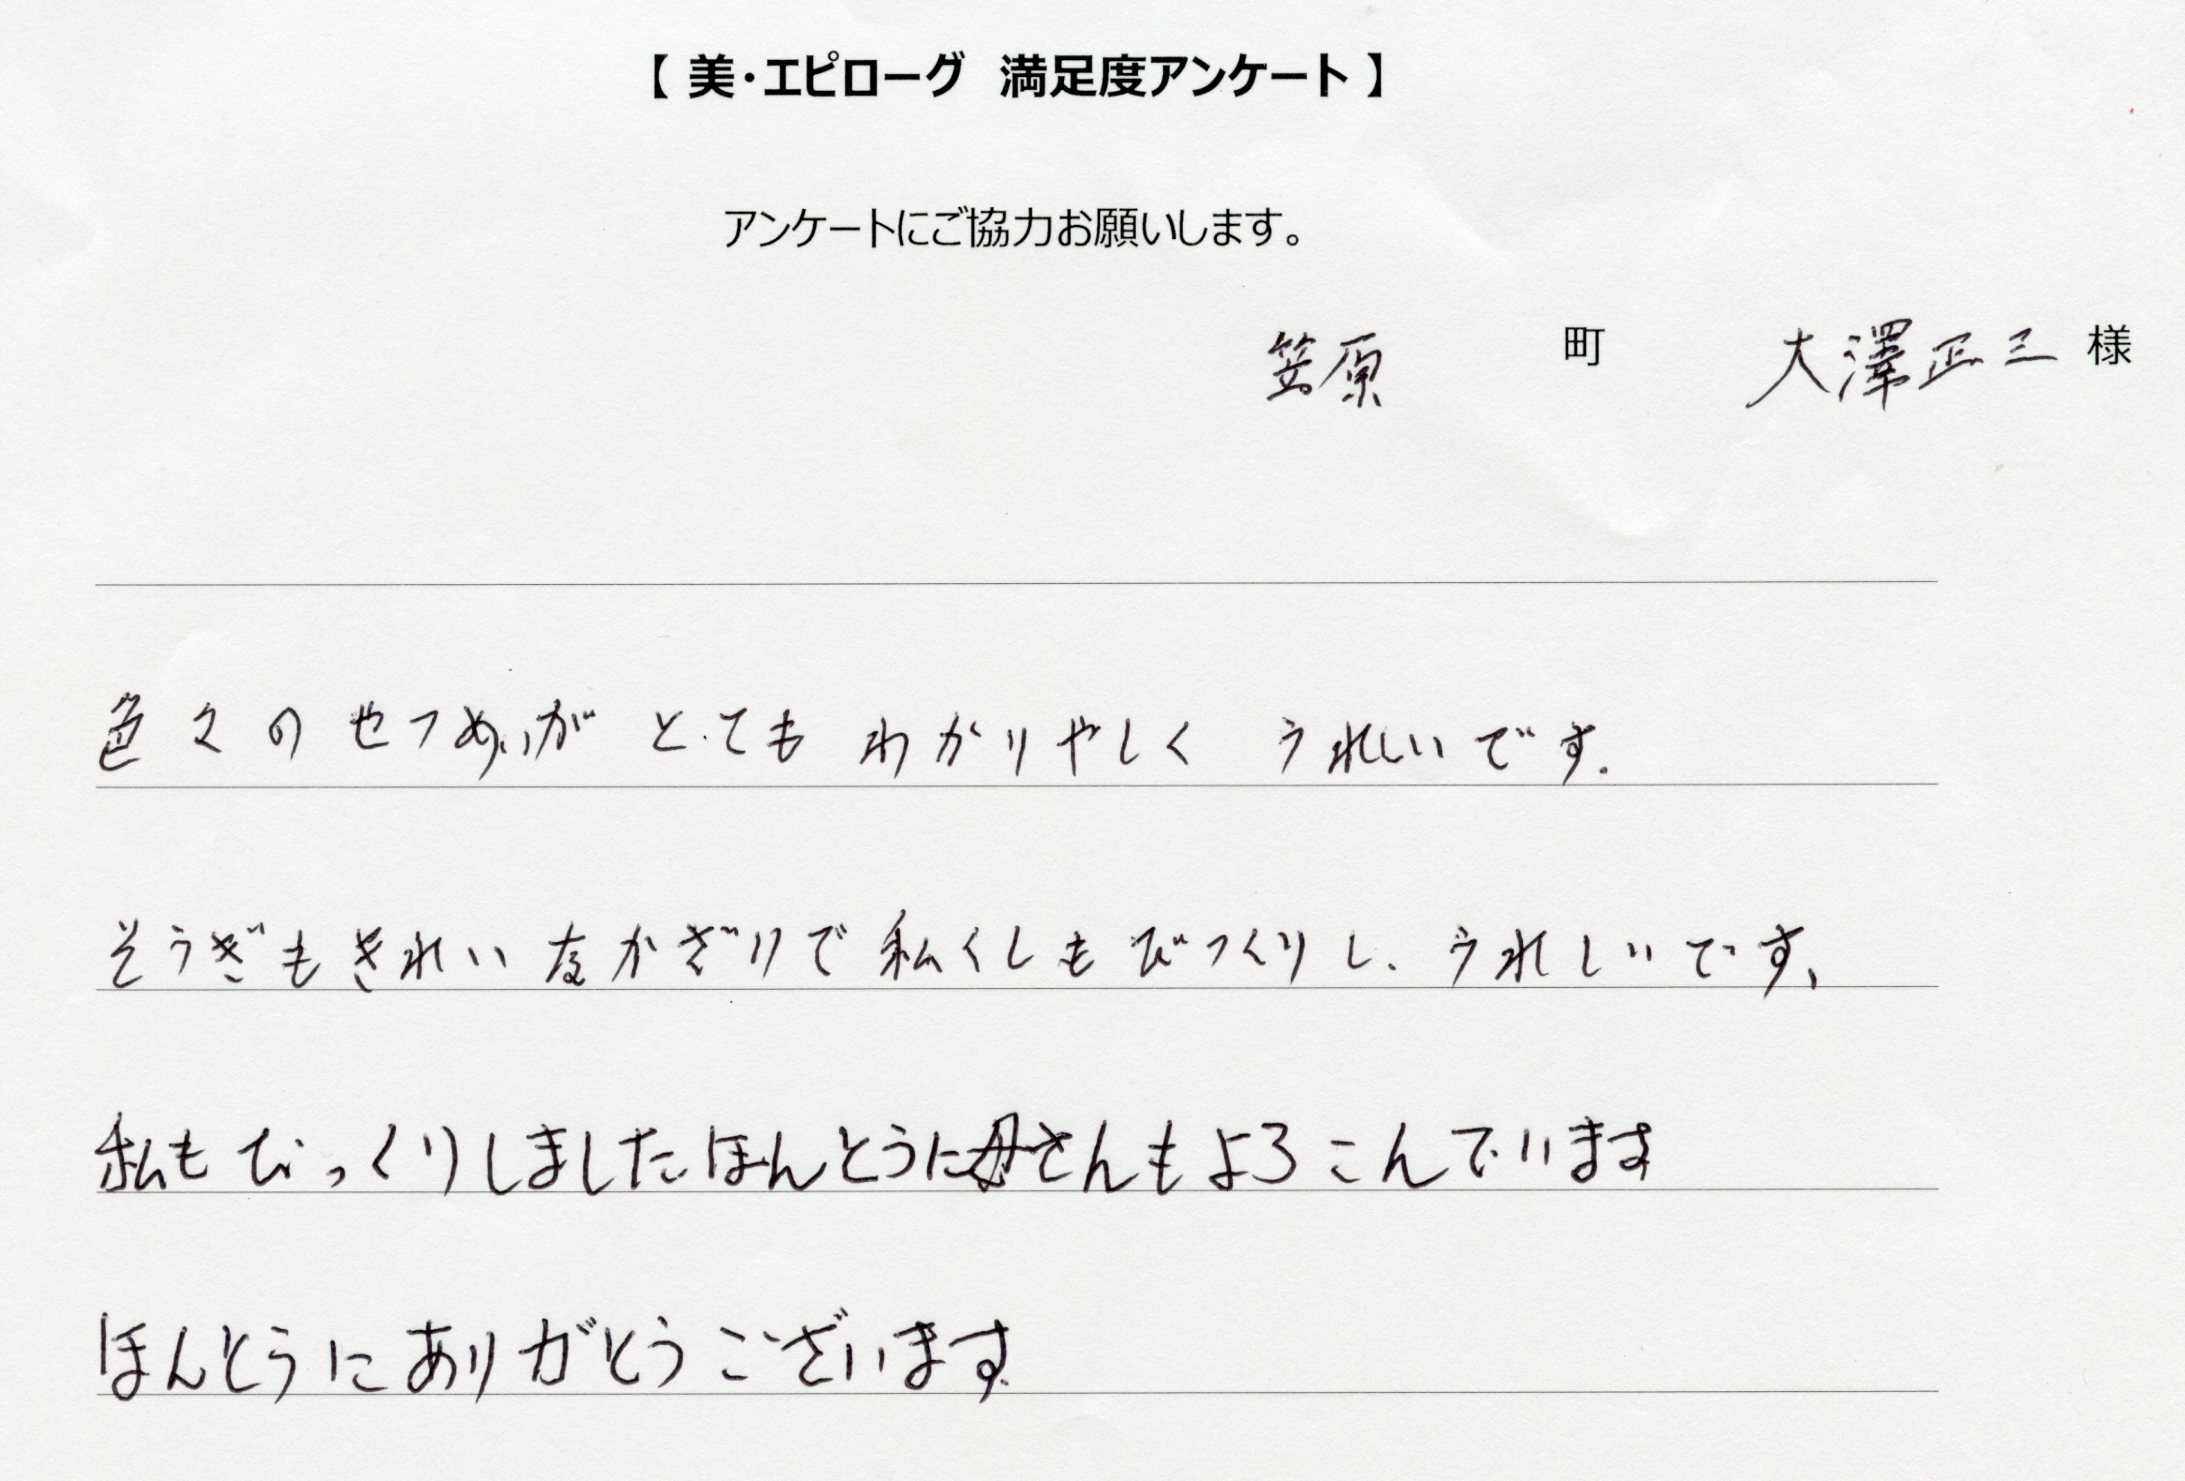 【 美・エピローグ 満足度アンケート 】
アンケートにご協力お願いします。
笠原 町 大澤正三 様
色々のせつめいが とても わかりやしく うれしいです.
そうぎもきれいなかざりで私くしもびつくりし、うれしいです、
私もびっくりしましたほんとうに母さんもよろこんでいます
ほんとうにありがとうございます